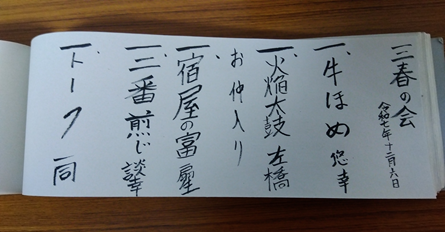 三春の会
令和七年十二月六日
一、牛ほめ 悠幸
一、火焔太鼓 左橋
お仲入り
一、宿屋の富 犀
一、三番煎じ 談幸
一、トーク 一同